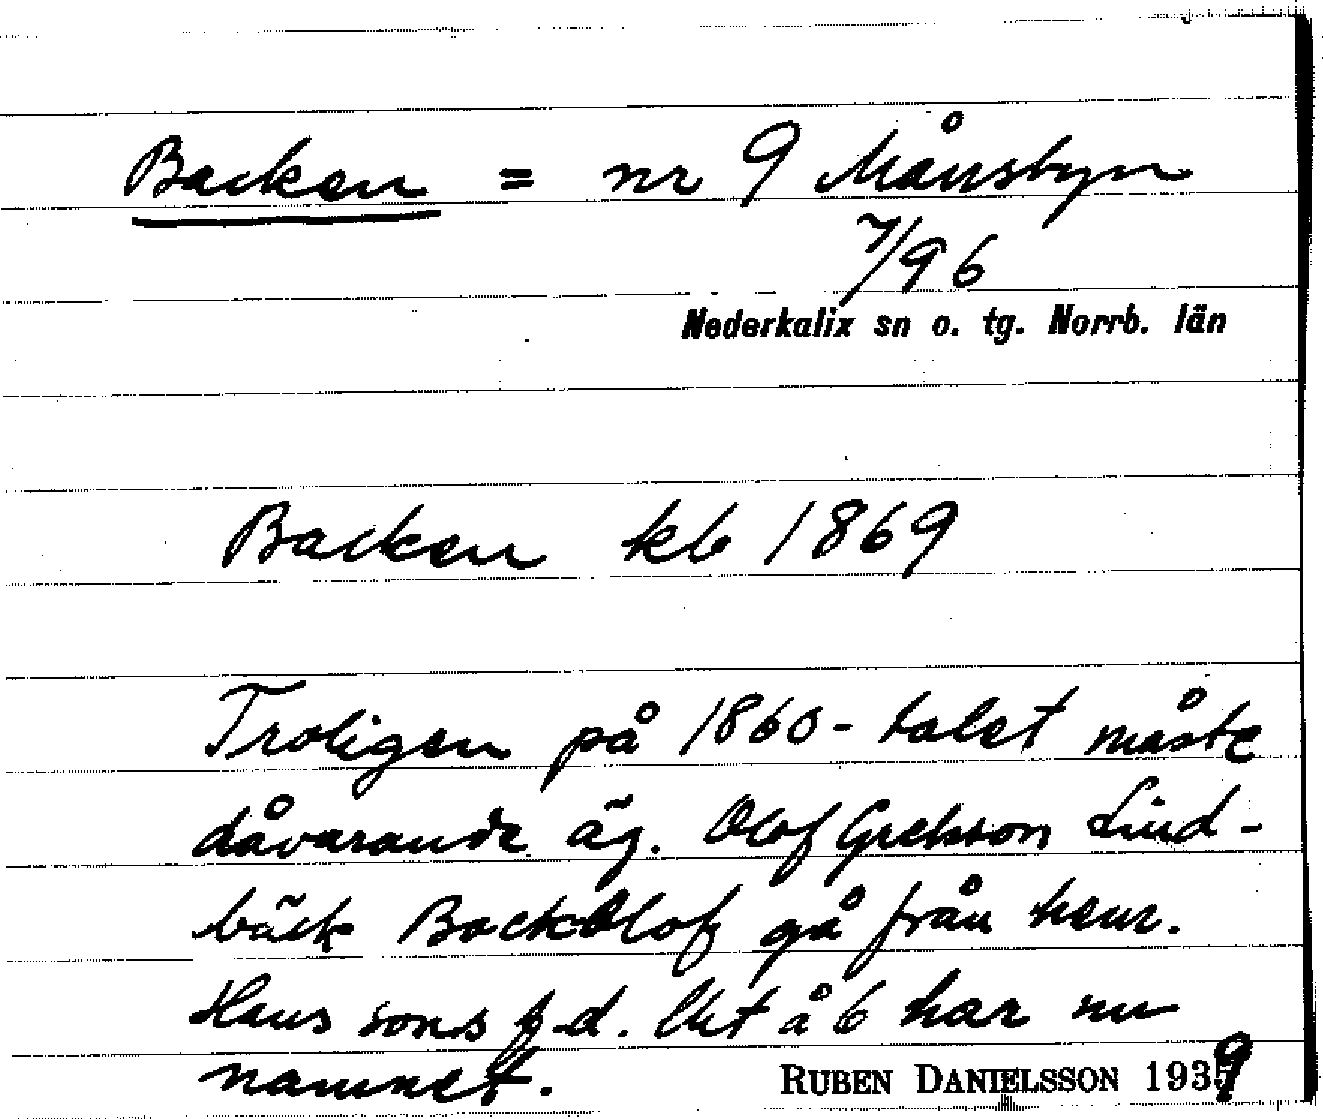 Backen = nr 9 Månsbyn
7/96
Nederkalix sn o. tg. Norrb. län
Backen kb 1869
Troligen på 1860-talet måste
dåvarande äg. Olof Grelsson Lind-
bäck BackOlof gå från hem.
Hans sons f.d. lht å 6 har nu
namnet.
RUBEN DANIELSSON 1939